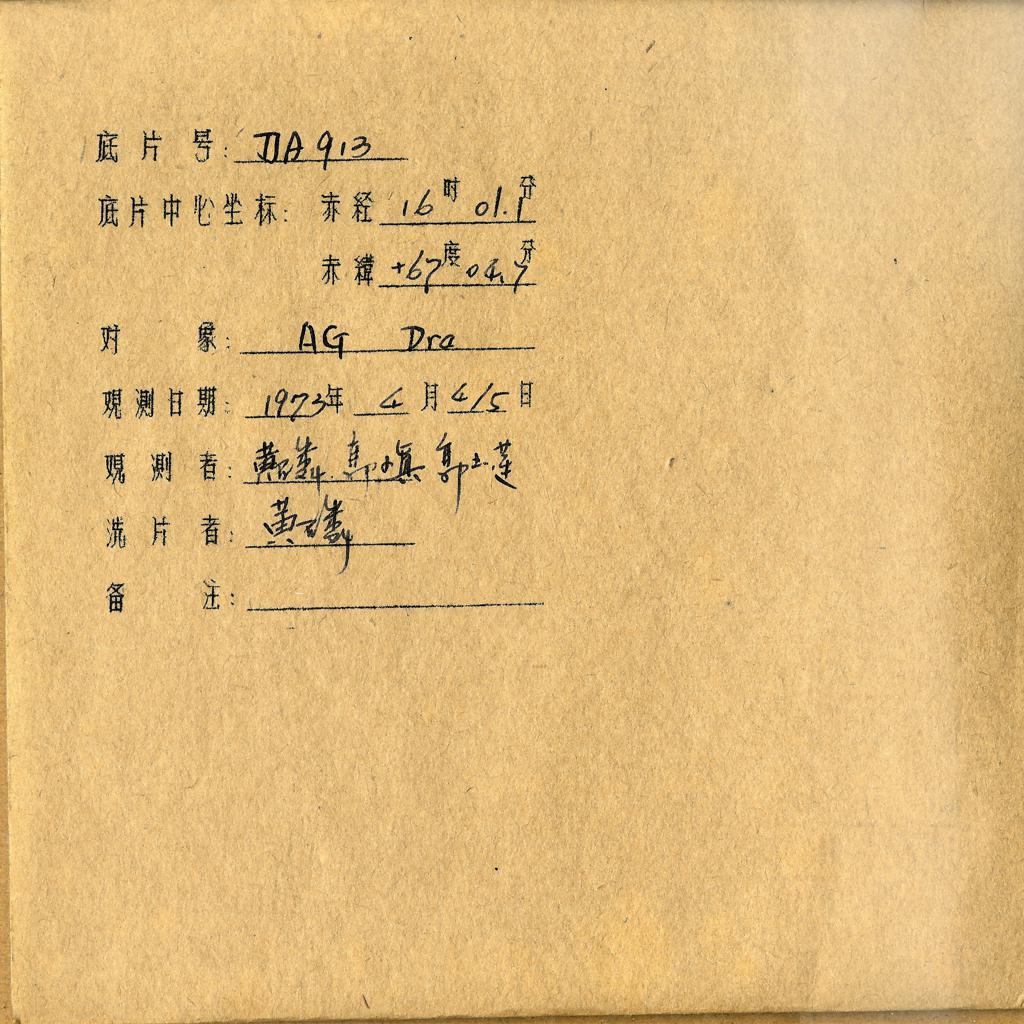 底片号: ДA 913
底片中心坐标: 赤経 16时 01.1分
赤緯 +67度 04.7分
对象: AG Dra
观测日期: 1973年 4月4/5日
观测者: 黄 郭 郭 莲
洗片者: 黄
备注: